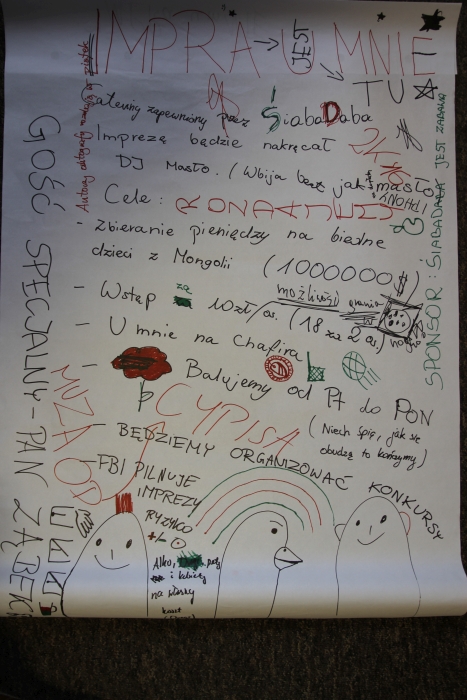 IMPRA → JEST U MNIE
TU
Catering zapewniony przez SiabaDaba
Imprezę będzie nakręcał 24h
DJ Masło. (Wbija bert jak masło
Cele:
- Zbieranie pieniędzy na biedne
dzieci z Mongolii (1000000$)
- Wstęp za 10zł/os. (18 za 2 os.)
możliwości prania
- U mnie na Chafira
- Balujemy od Pt do PON
(Niech śpię, jak się
obudzą to kończymy)
CYPISA
- BĘDZIEMY ORGANIZOWAĆ KONKURSY
- FBI PILNUJE
IMPREZY
RYZYKO
+/- 0
Alko,
i kobiety
na własny
koszt
MUZA OP
GOŚĆ SPECJALNY - PAN ZĄBEK
SPONSOR: SIABADABA JEST ZABAWA